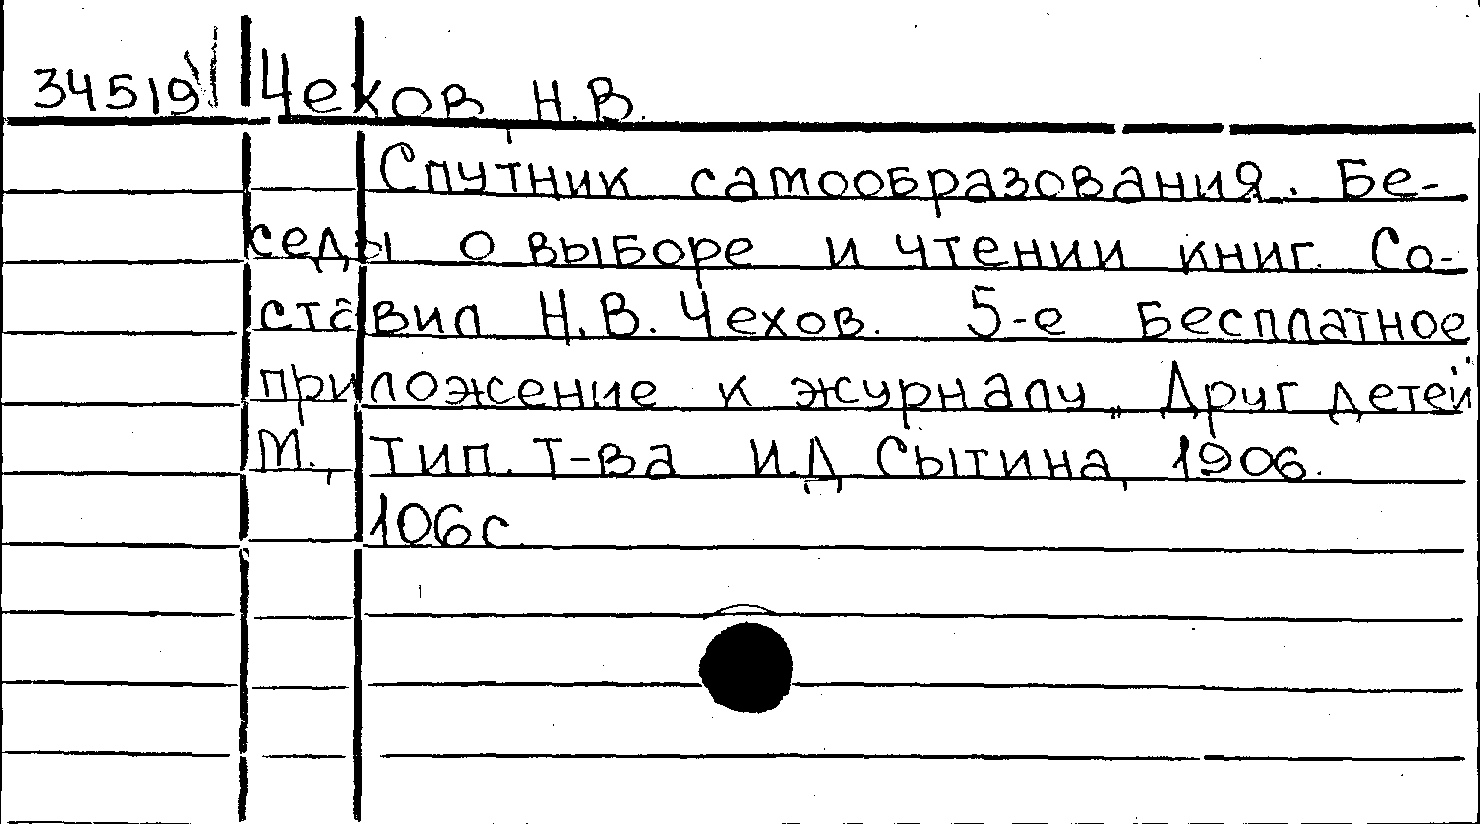 34519 Чехов Н.В.
Спутник самообразования. Бе-
седы о выборе и чтении книг. Со-
ставил Н.В. Чехов. 5-е Бесплатное
приложение к журналу „Друг детей
М., Тип. Т-ва И.Д Сытина, 1906.
106с